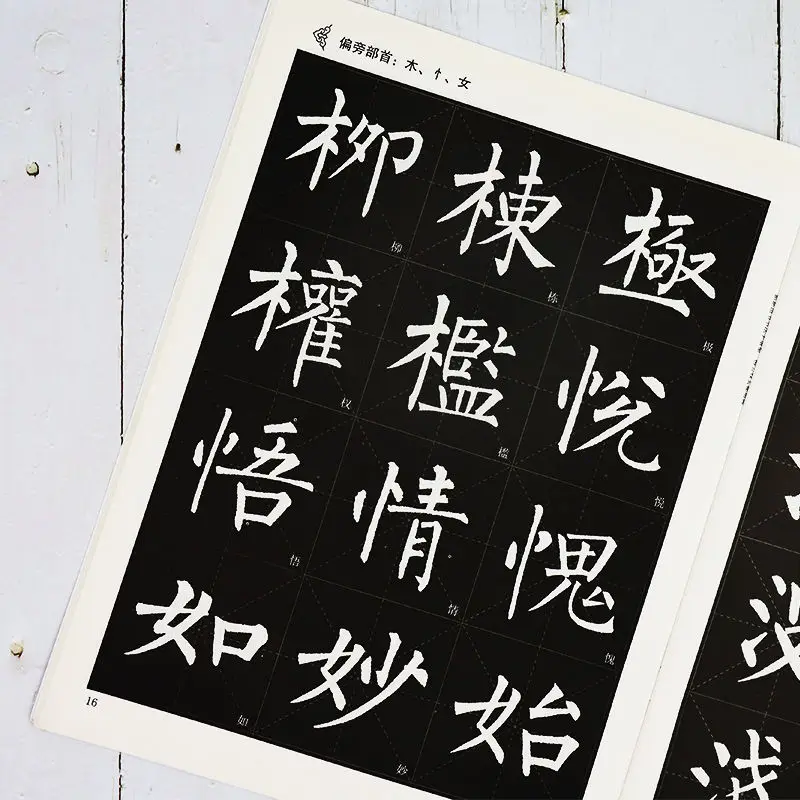 偏旁部首：木、忄、女
柳 棟 極
柳 栋 极
權 檻 悦
权 槛 悦
悟 情 愧
悟 情 愧
如 妙 始
如 妙
16